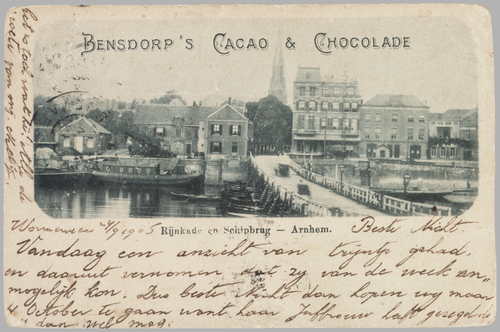 BENSDORP'S CACAO & CHOCOLADE
Rijnkade en Schipbrug — Arnhem.
Wormerveer 4/9 1905
Beste Nicht
Vandaag een anzicht van Trijntje gehad,
en daaruit vernomen dat zij van de week "an"
mogelijk kon. Dus beste Nicht dan hopen wij maar
4 October te gaan want haar Juffrouw heeft gezegd
dan wel mag.